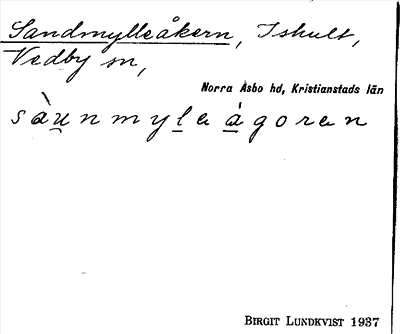 Sandmylleåkern, Ishult,
Vedby sn,
Norra Åsbo hd, Kristianstads län
sàu̲nmyl̲eá̲goren
BIRGIT LUNDKVIST 1937